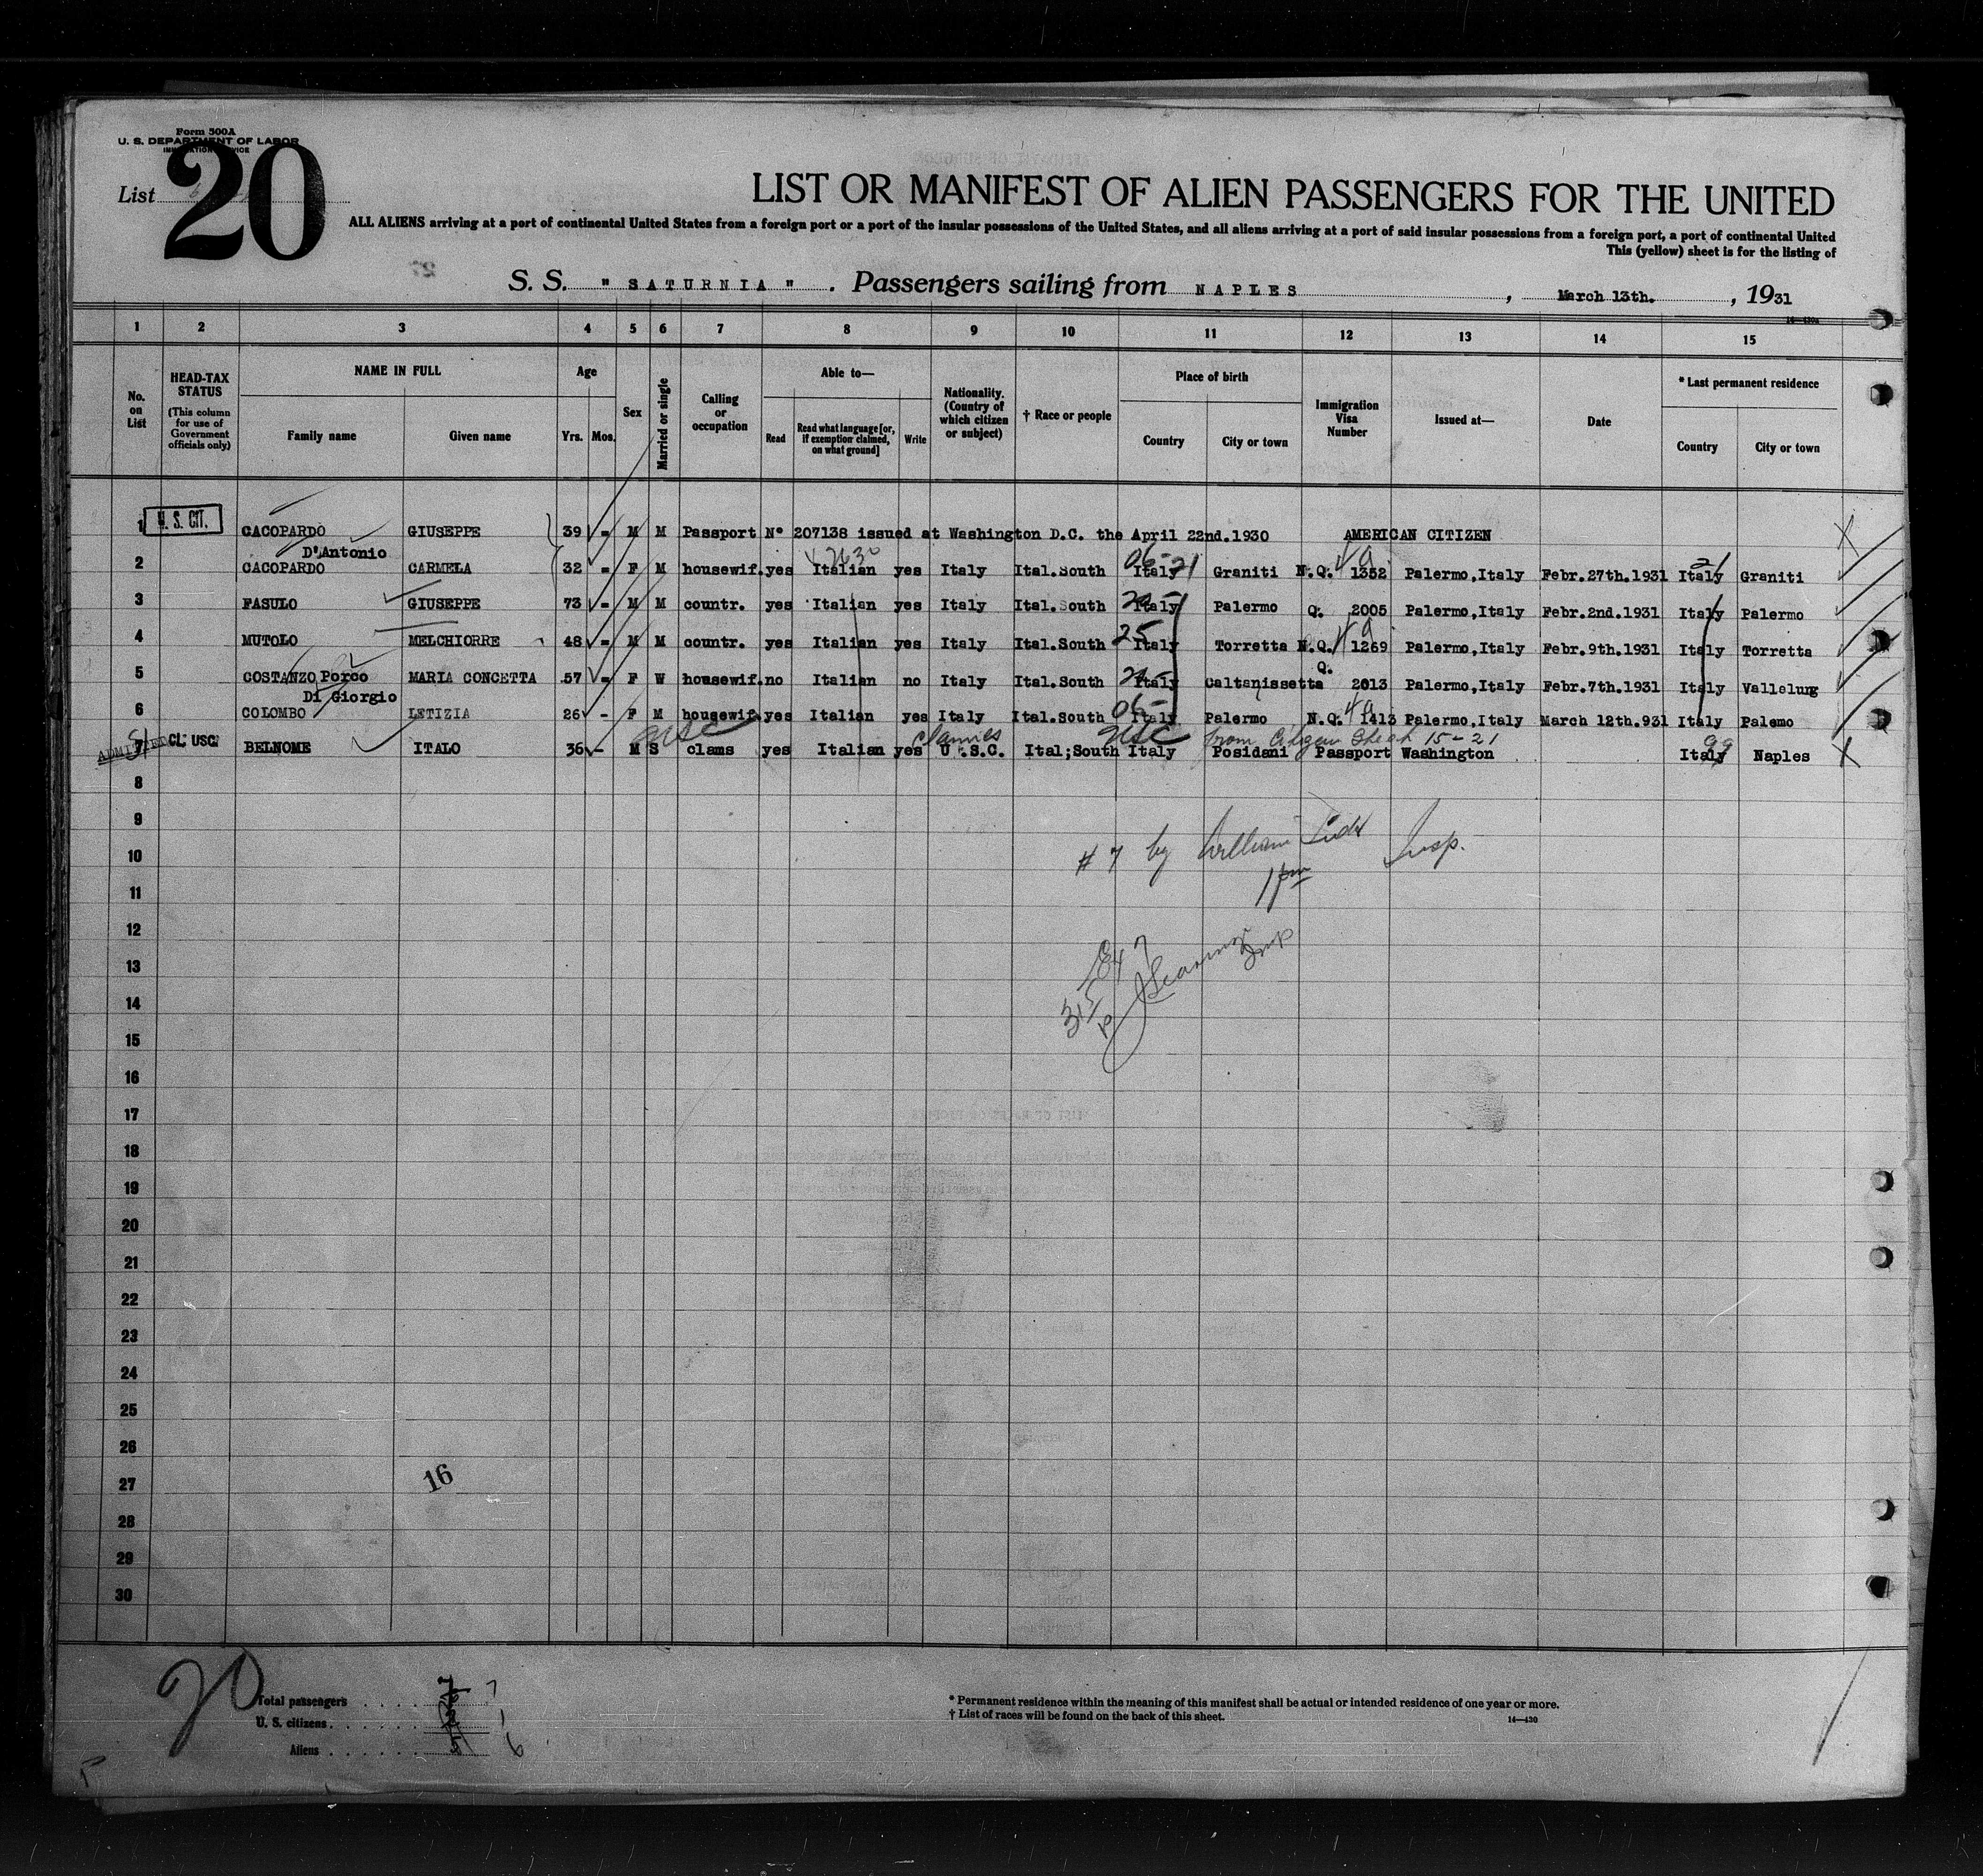 Form 500A
U. S. DEPARTMENT OF LABOR
IMMIGRATION SERVICE
List
20
LIST OR MANIFEST OF ALIEN PASSENGERS FOR THE UNITED
ALL ALIENS arriving at a port of continental United States from a foreign port or a port of the insular possessions of the United States, and all aliens arriving at a port of said insular possessions from a foreign port, a port of continental United
This (yellow) sheet is for the listing of
S. S. " SATURNIA " . Passengers sailing from NAPLES , March 13th. , 1931
1 2 3 4 5 6 7 8 9 10 11 12 13 14 15
No. on List
HEAD-TAX STATUS (This column for use of Government officials only)
NAME IN FULL Family name Given name
Age Yrs. Mos.
Sex
Married or single
Calling or occupation
Able to— Read Read what language [or, if exemption claimed, on what ground] Write
Nationality. (Country of which citizen or subject)
† Race or people
Place of birth Country City or town
Immigration Visa Number
Issued at—
Date
* Last permanent residence Country City or town
1 U. S. CIT. CACOPARDO GIUSEPPE 39 - M M Passport N° 207138 issued at Washington D.C. the April 22nd.1930 AMERICAN CITIZEN
D'Antonio
2 CACOPARDO CARMELA 32 - F M housewif. yes Italian yes Italy Ital.South Italy Graniti N.Q. 1352 Palermo,Italy Febr.27th.1931 Italy Graniti
3 FASULO GIUSEPPE 73 - M M countr. yes Italian yes Italy Ital.South Italy Palermo Q. 2005 Palermo,Italy Febr.2nd.1931 Italy Palermo
4 MUTOLO MELCHIORRE 48 - M M countr. yes Italian yes Italy Ital.South 25 Italy Torretta N.Q. 1269 Palermo,Italy Febr.9th.1931 Italy Torretta
5 COSTANZO Porco MARIA CONCETTA 57 - F W housewif. no Italian no Italy Ital.South Italy Caltanissetta Q. 2013 Palermo,Italy Febr.7th.1931 Italy Vallelung
Di Giorgio
6 COLOMBO LETIZIA 26 - F M housewif. yes Italian yes Italy Ital.South 06- Italy Palermo N.Q. 1413 Palermo,Italy March 12th.931 Italy Palemo
USC USC from Citizen Sheet 15-21
ADMITTED SI CL. USC
7 BELNOME ITALO 36 - M S clams yes Italian yes U.S.C. Ital;South Italy Posidani Passport Washington Italy Naples
8
9
10
11
12
13
14
15
16
17
18
19
20
21
22
23
24
25
26
27
28
29
30
# 7 by William Insp.
1 pm
Ex 7
315
16
20
Total passengers 7
U. S. citizens 1
Aliens 6
* Permanent residence within the meaning of this manifest shall be actual or intended residence of one year or more.
† List of races will be found on the back of this sheet.
14—430